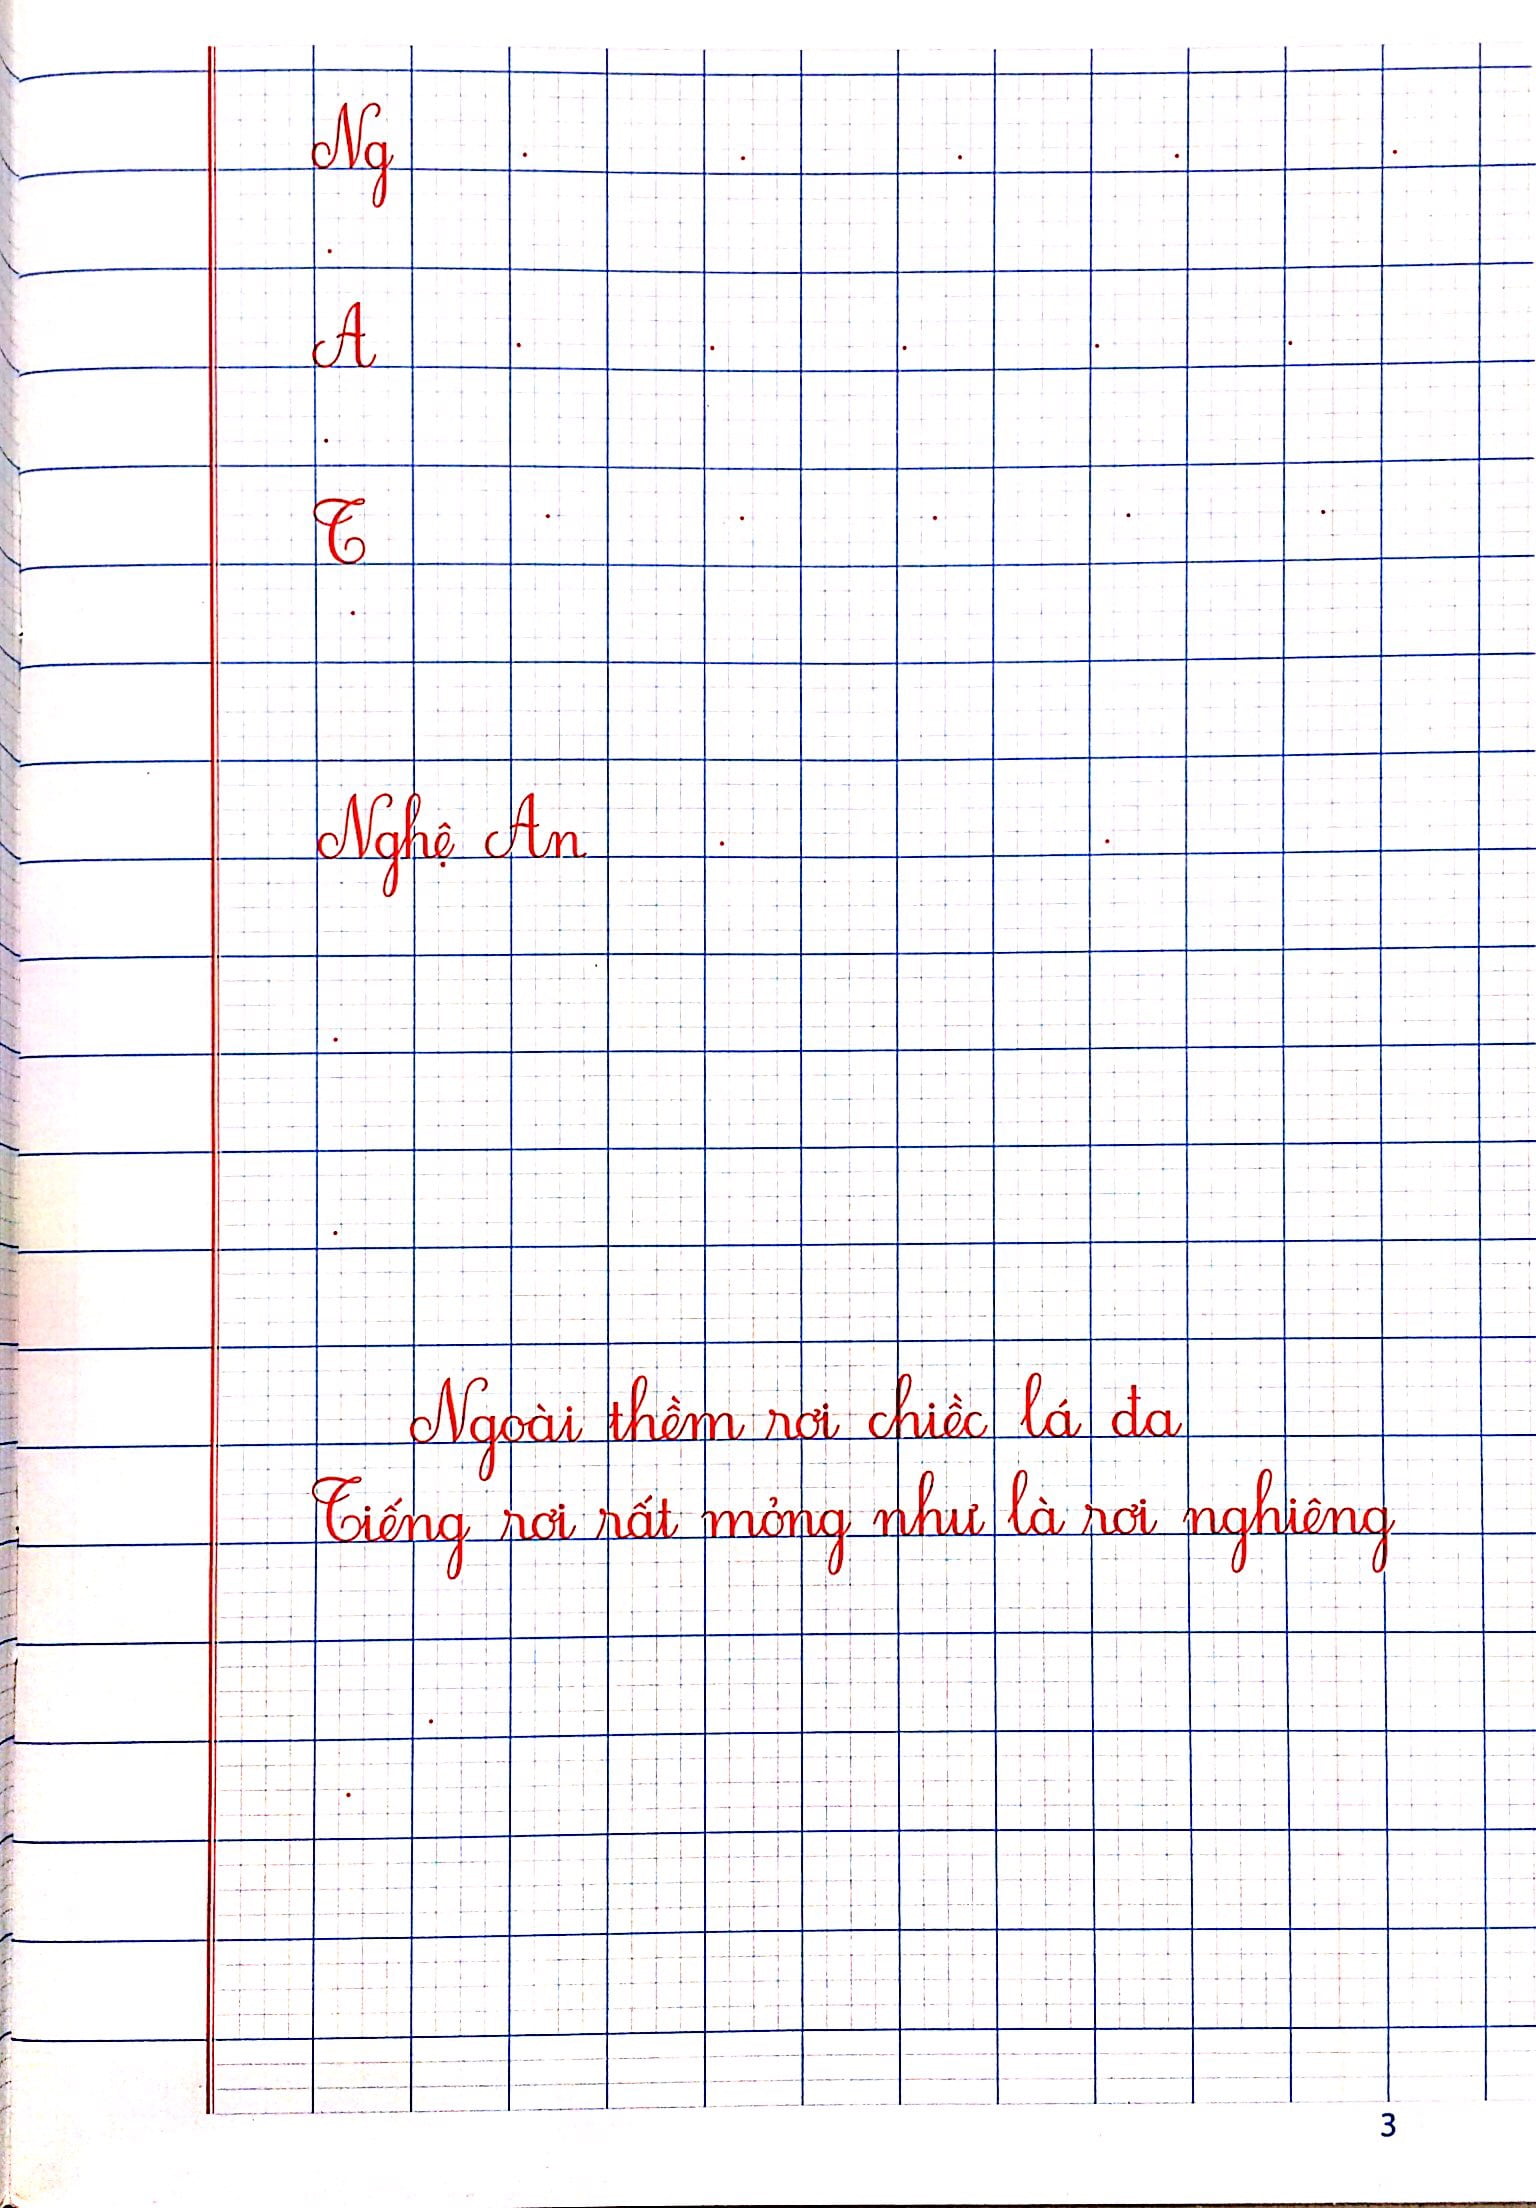 Ng
A
T
Nghệ An
Ngoài thềm rơi chiếc lá đa
Tiếng rơi rất mỏng như là rơi nghiêng
3